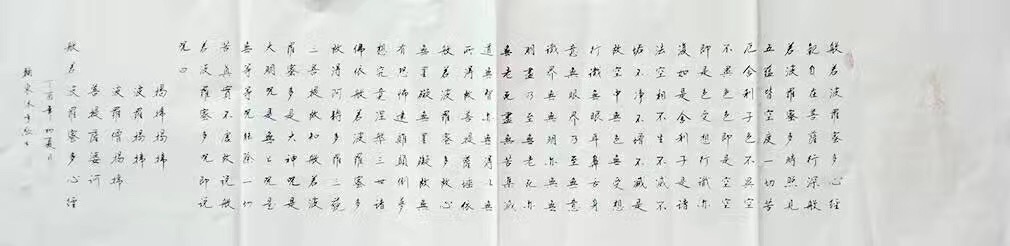 般若波羅蜜多心經
觀自在菩薩行深般
若波羅蜜多時照見
五蘊皆空度一切苦
厄舍利子色不異空
不異色色即是空空
即是色受想行識亦
復如是舍利子是諸
法空相不生不滅不
垢不淨不增不減是
故空中無色無受想
行識無眼耳鼻舌身
意無眼界乃至無意
識界無無明亦無無
明盡乃至無老死亦
無老死盡無苦集滅
道無智亦無得以無
所得故菩提薩埵依
般若波羅蜜多故心
無罣礙無罣礙故無
有恐怖遠離顛倒夢
想究竟涅槃三世諸
佛依般若波羅蜜多
故得阿耨多羅三藐
三菩提故知般若波
羅蜜多是大神呪是
大明呪是無上呪是
無等等呪能除一切
苦真實不虛故說般
若波羅蜜多呪即說
呪曰
揭諦揭諦
波羅揭諦
波羅僧揭諦
菩提薩婆訶
般若波羅蜜多心經
丁酉年